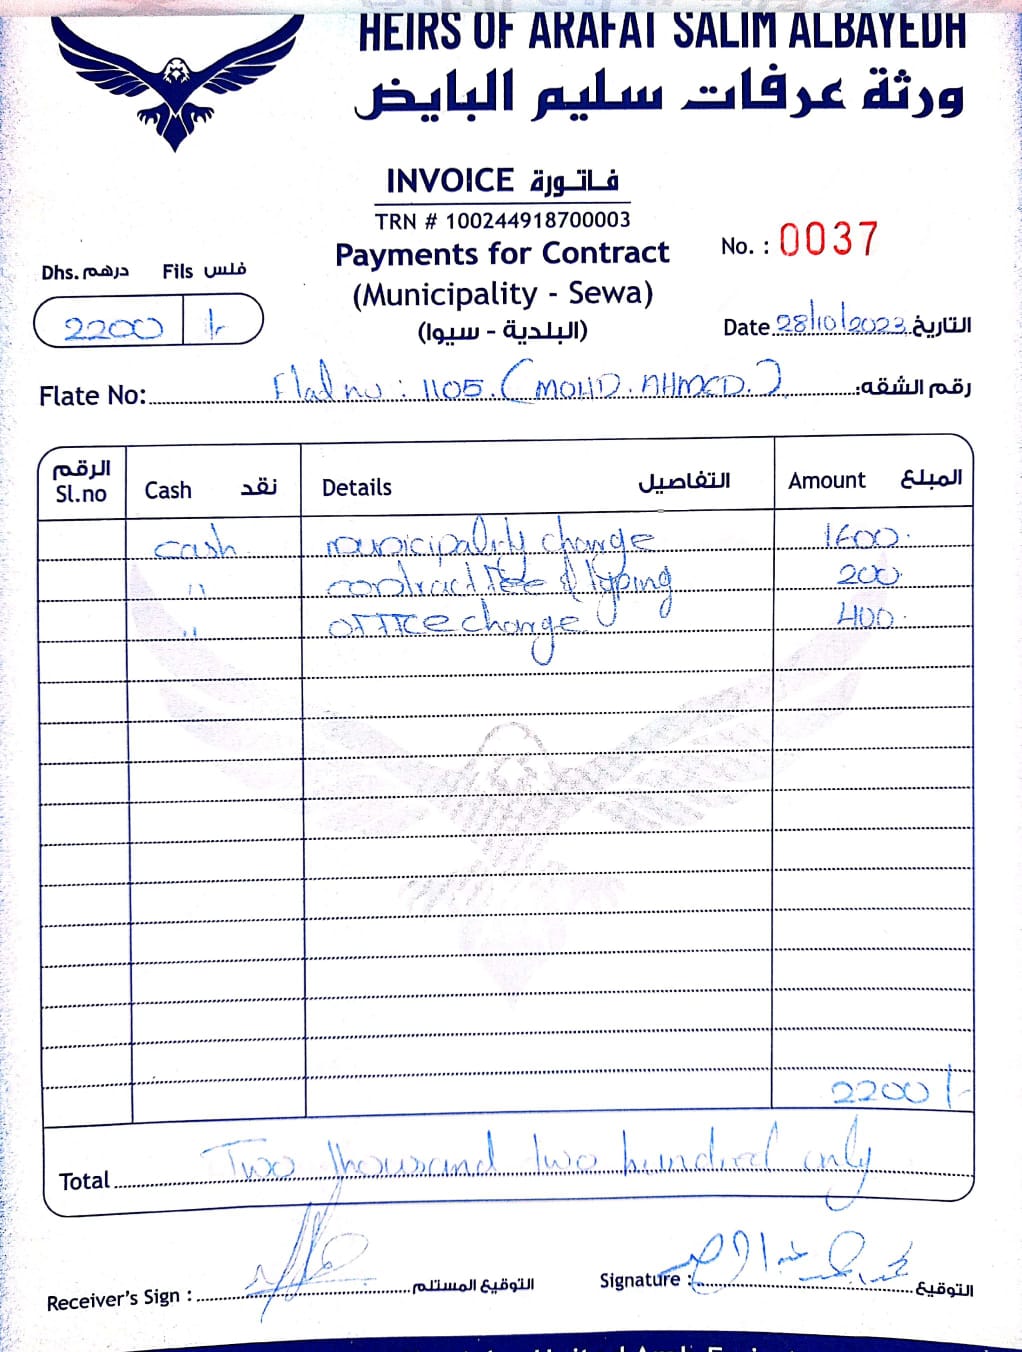 HEIRS OF ARAFAT SALIM ALBAYEDH
ورثة عرفات سليم البايض
INVOICE فاتورة
TRN # 100244918700003
Payments for Contract
(Municipality - Sewa)
(البلدية - سيوا)
No. : 0037
Dhs. درهم Fils فلس
2200 /-
Date 28/10/2023 التاريخ
Flate No: Flat no : 1105. (MOHD. AHMED.) رقم الشقه:
الرقم Sl.no Cash نقد Details التفاصيل Amount المبلغ
cash municipality charge 1600.
" contract fee & typing 200.
" office charge 400.
2200/-
Total Two thousand two hundred only
Receiver's Sign : التوقيع المستلم
Signature : التوقيع